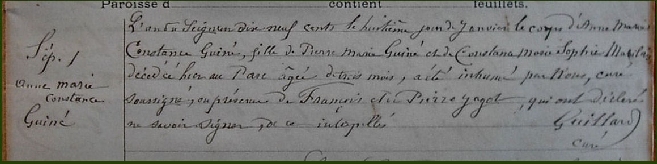 Paroisse d contient feuillets.
L'an du Seigneur dix neuf cent le huitième jour de Janvier le corps d'Anne Marie
Sép. 1
Constance Guiné, fille de Pierre Marie Guiné et de Constance Marie Sophie
anne marie
décédée hier au Parc âgée de trois mois, a été inhumé par Nous, curé
constance
soussigné, en présence de François et de Pierre Jagot, qui ont déclaré
Guiné
ne savoir signer, de ce interpellés
Guillard
curé